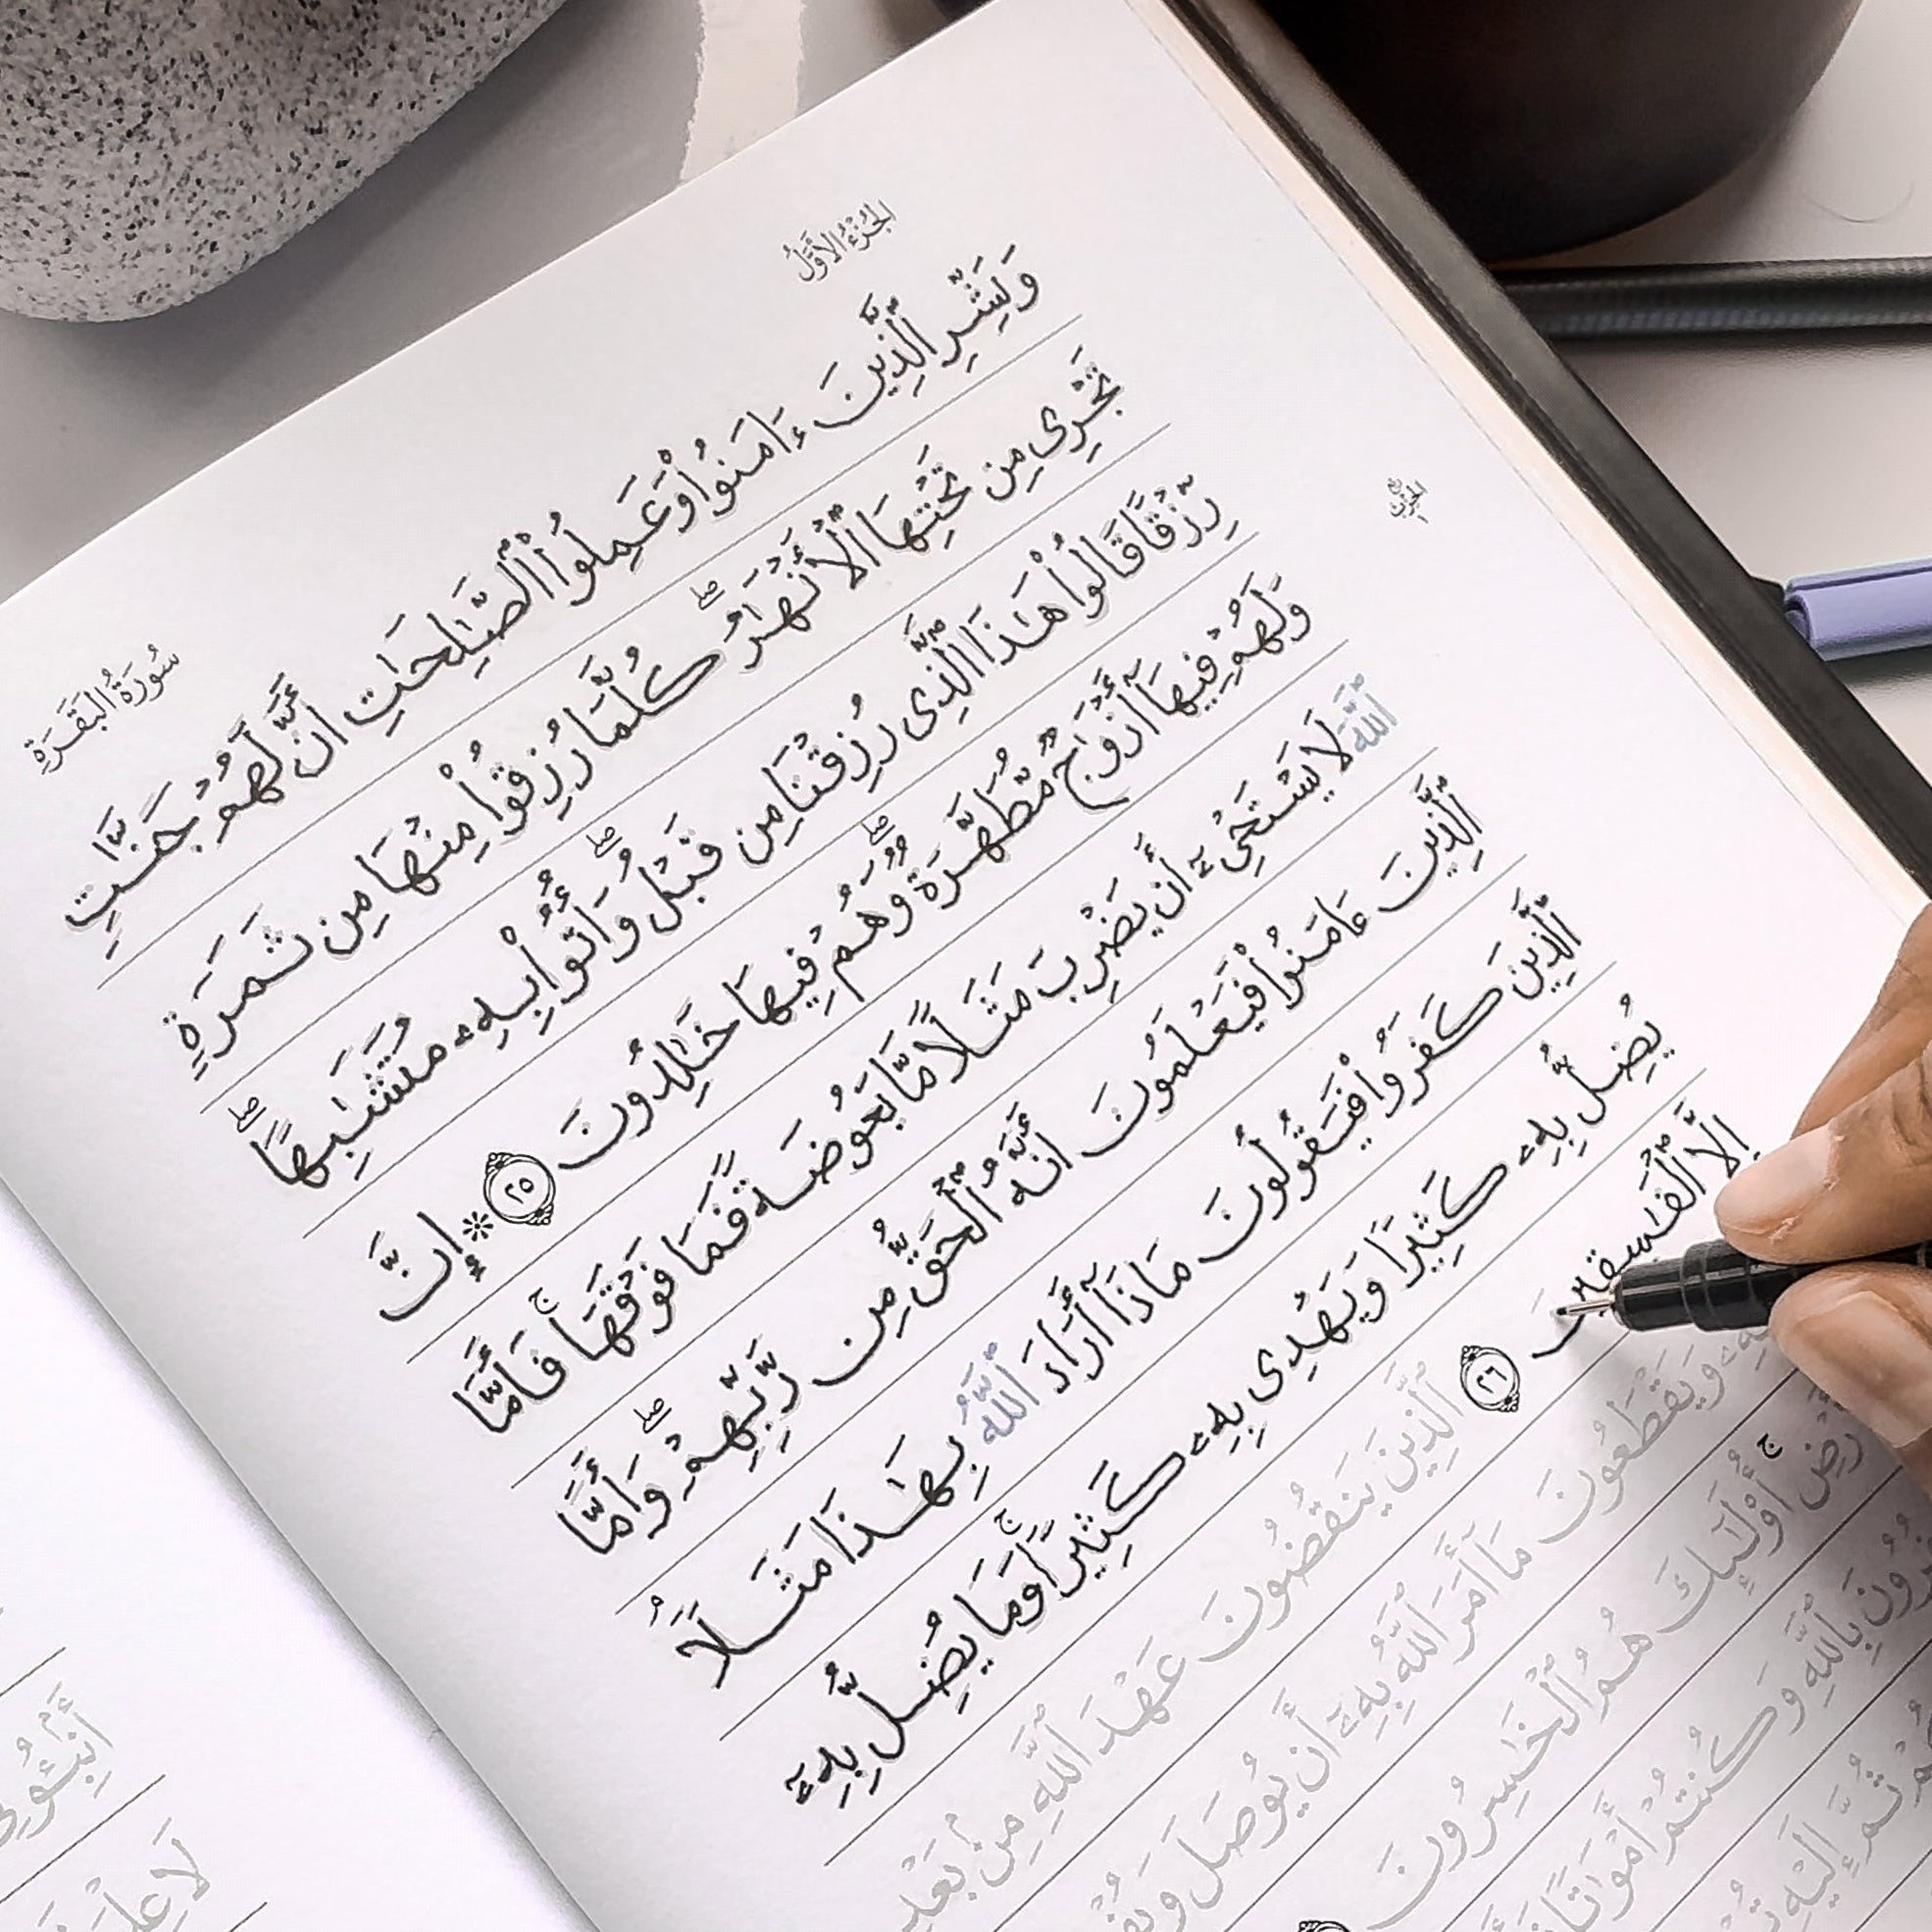 الجُزْءُ الأَوَّلُ
سُورَةُ البَقَرَةِ
وَبَشِّرِ ٱلَّذِينَ ءَامَنُوا۟ وَعَمِلُوا۟ ٱلصَّـٰلِحَـٰتِ أَنَّ لَهُمْ جَنَّـٰتٍ
تَجْرِى مِن تَحْتِهَا ٱلْأَنْهَـٰرُ ۖ كُلَّمَا رُزِقُوا۟ مِنْهَا مِن ثَمَرَةٍ
رِّزْقًا قَالُوا۟ هَـٰذَا ٱلَّذِى رُزِقْنَا مِن قَبْلُ ۖ وَأُتُوا۟ بِهِۦ مُتَشَـٰبِهًا ۖ
وَلَهُمْ فِيهَآ أَزْوَٰجٌ مُّطَهَّرَةٌ ۖ وَهُمْ فِيهَا خَـٰلِدُونَ ٢٥ * إِنَّ
ٱللَّهَ لَا يَسْتَحْىِۦٓ أَن يَضْرِبَ مَثَلًا مَّا بَعُوضَةً فَمَا فَوْقَهَا ۚ فَأَمَّا
ٱلَّذِينَ ءَامَنُوا۟ فَيَعْلَمُونَ أَنَّهُ ٱلْحَقُّ مِن رَّبِّهِمْ ۖ وَأَمَّا
ٱلَّذِينَ كَفَرُوا۟ فَيَقُولُونَ مَاذَآ أَرَادَ ٱللَّهُ بِهَـٰذَا مَثَلًا
يُضِلُّ بِهِۦ كَثِيرًا وَيَهْدِى بِهِۦ كَثِيرًا ۚ وَمَا يُضِلُّ بِهِۦٓ
إِلَّا ٱلْفَـٰسِقِينَ ٢٦ ٱلَّذِينَ يَنقُضُونَ عَهْدَ ٱللَّهِ مِنۢ بَعْدِ
وَيَقْطَعُونَ مَآ أَمَرَ ٱللَّهُ بِهِۦٓ أَن يُوصَلَ
أُو۟لَـٰٓئِكَ هُمُ ٱلْخَـٰسِرُونَ
بِٱللَّهِ وَكُنتُمْ أَمْوَٰتًا
ثُمَّ إِلَيْهِ